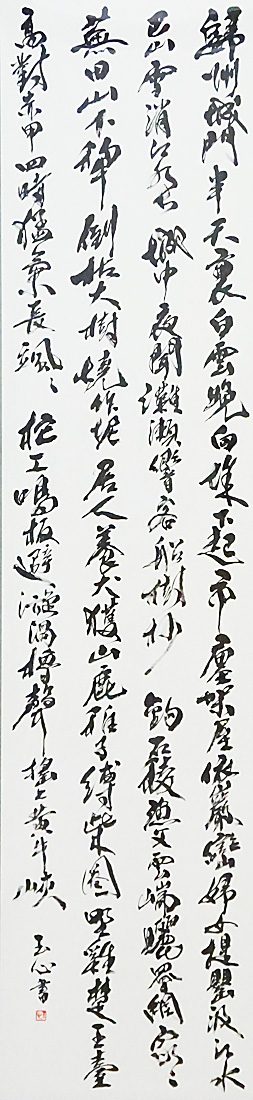 歸州城門半天裏白雲晚向城下起市廛架屋依巖巒婦女提罌汲江水
巴山雪消江水長中夜聞灘瀨響客船樹杪鉤石稜漁父雲端曬罾網家々
蕪田山下犁倒枯大樹燒作泥居人養犬獲山鹿稚子縛柴圈野雞楚王臺
高對赤甲四時猛氣長颯々柁工鳴板避漩渦櫓聲搖上黃牛峽 玉心書